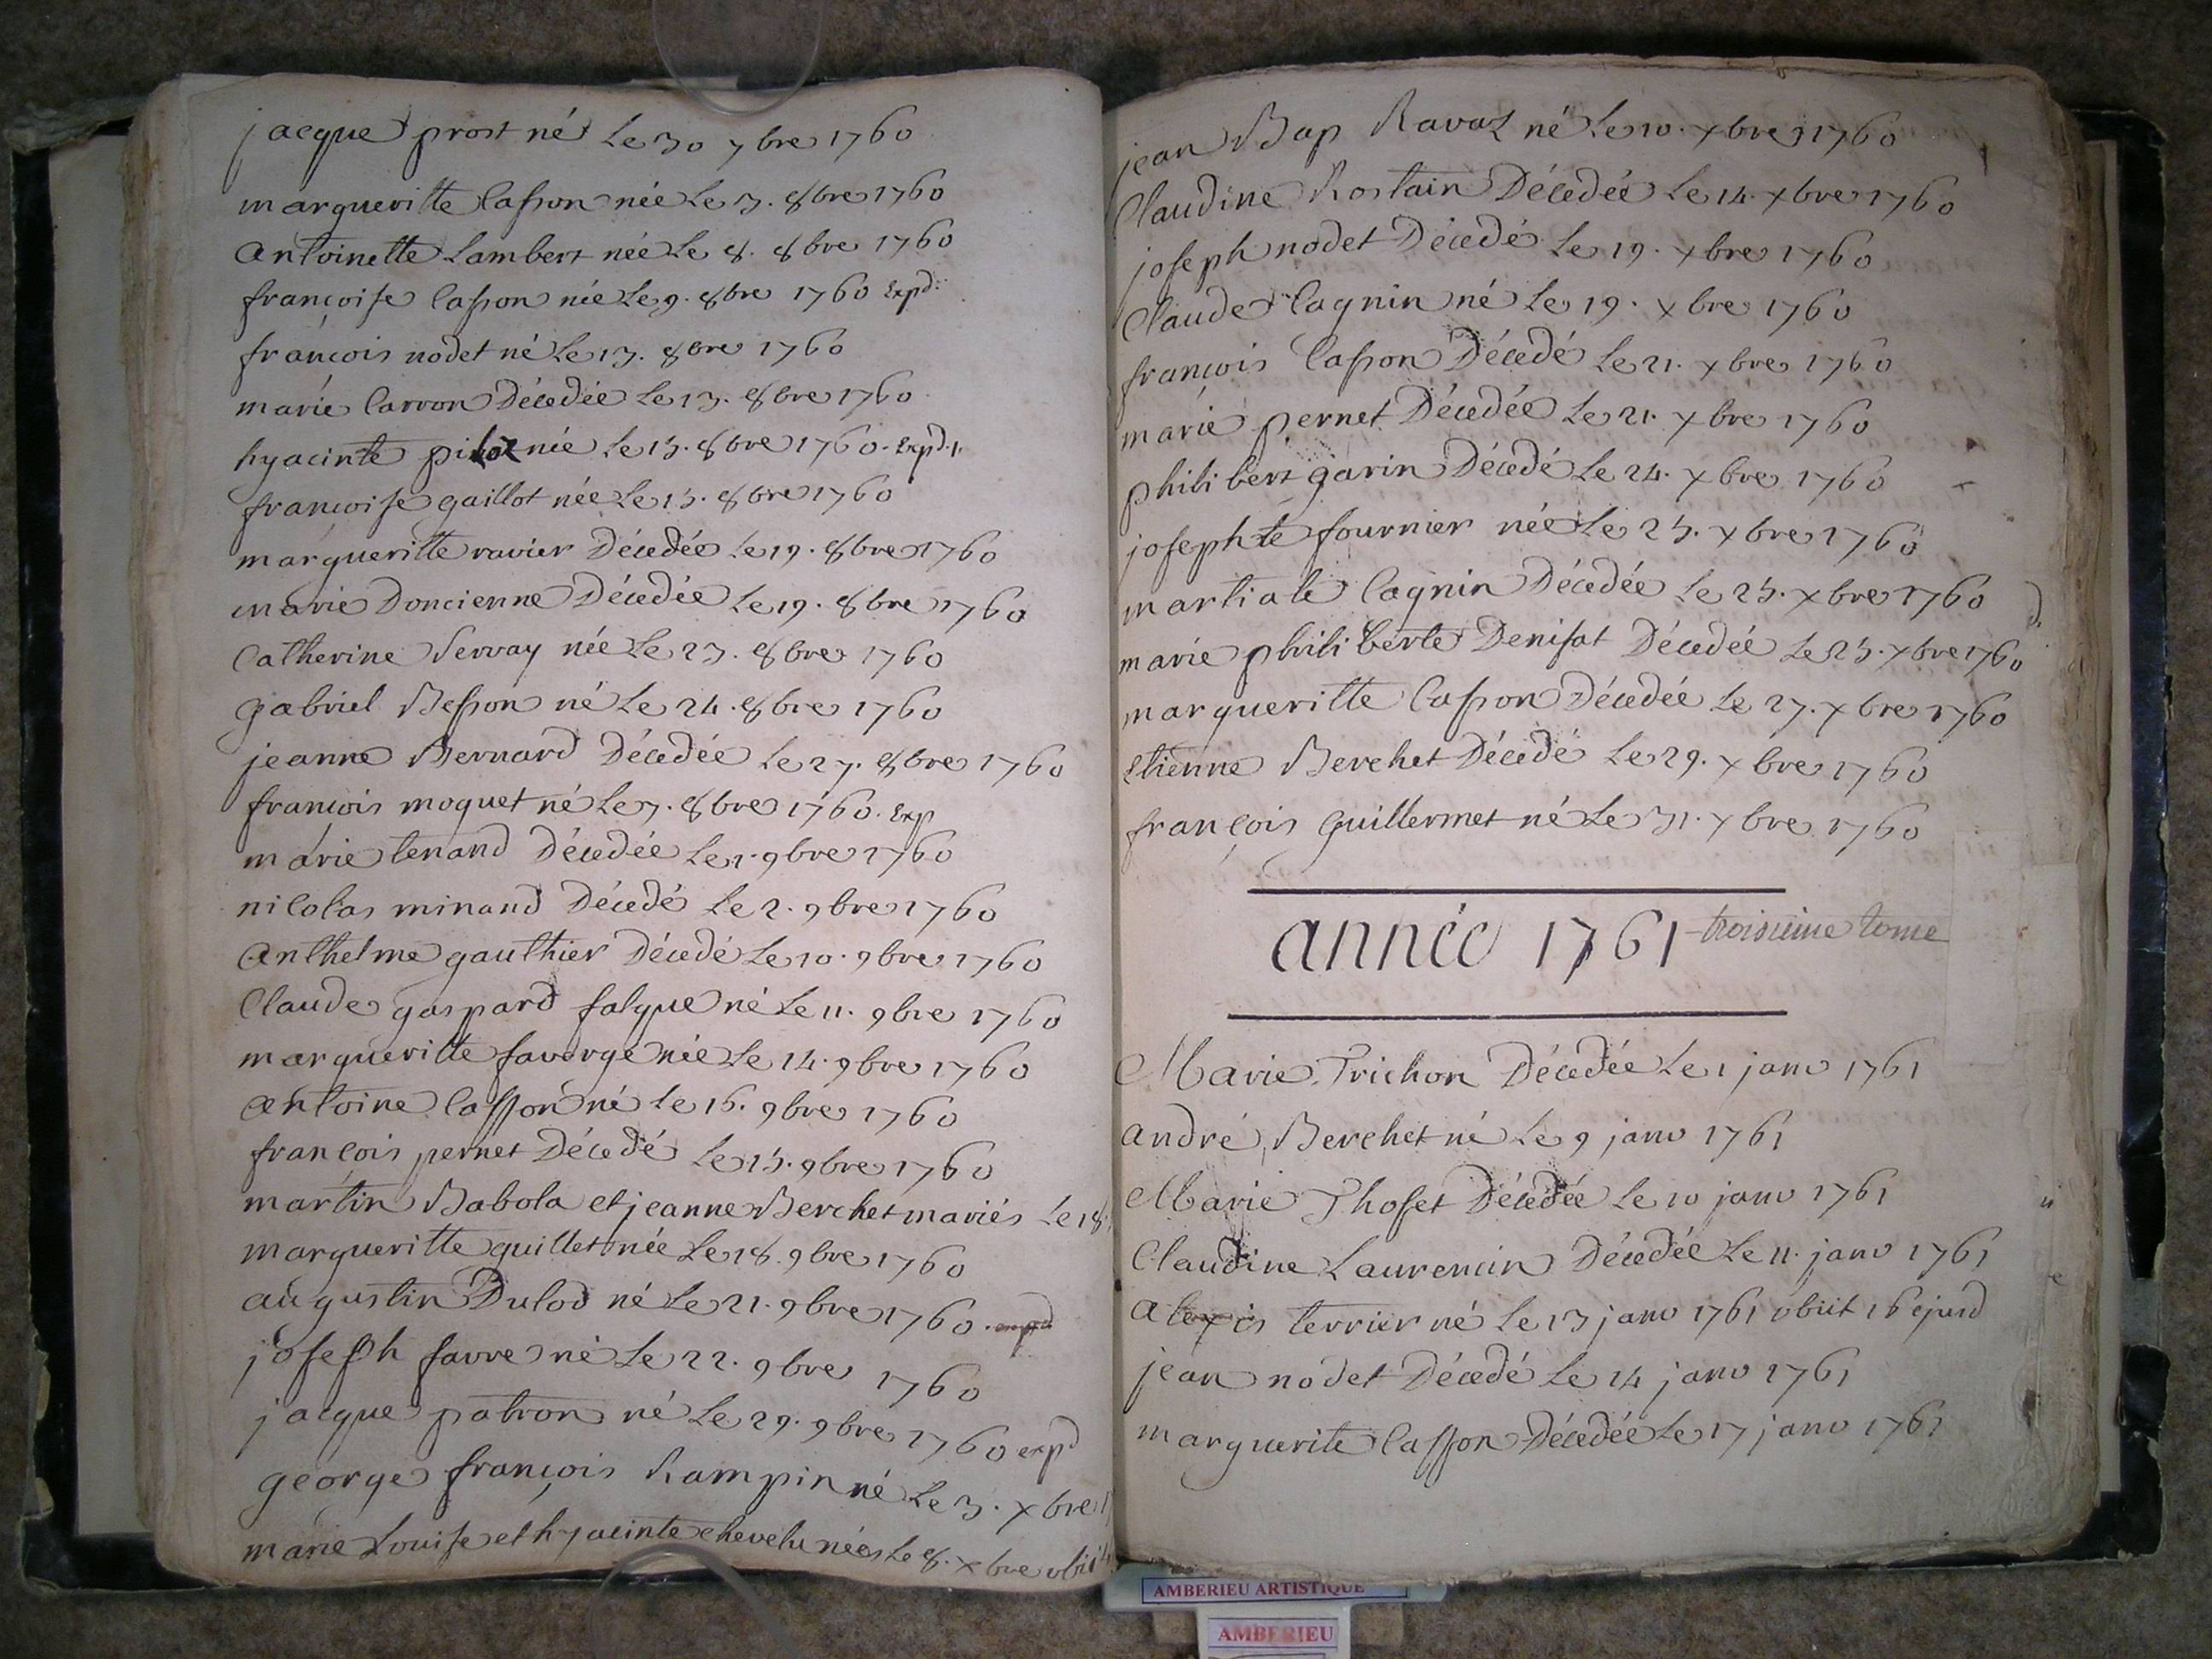 jacque prost né Le 30 7bre 1760
margueritte Casson née Le 3. 8bre 1760
antoinette Lambert née Le 8. 8bre 1760
françoise Casson née Le 9. 8bre 1760 Expd:
françois nodet né Le 13. 8bre 1760
marie Carron Décedée Le 13. 8bre 1760
hyacinte née Le 15. 8bre 1760. Expd.
françoise gaillot née Le 15. 8bre 1760
margueritte ravier Décedée Le 19. 8bre 1760
marie Doncienne Décedée Le 19. 8bre 1760
Catherine Servay née Le 23. 8bre 1760
gabriel Besson né Le 24. 8bre 1760
jeanne Bernard Décedée Le 27. 8bre 1760
françois moquet né Le 8bre 1760. Exp
marie tenand Décedée Le 1. 9bre 1760
nicolas minand Décedé Le 2. 9bre 1760
anthelme gauthier Décedé Le 10. 9bre 1760
Claude gaspard falque né Le 11. 9bre 1760
margueritte faverge née Le 14. 9bre 1760
antoine Casson né Le 16. 9bre 1760
françois pernet Décedé Le 15. 9bre 1760
martin Babola et jeanne Berchet mariés Le 18
margueritte guillet née Le 18. 9bre 1760
augustin Dulod né Le 21. 9bre 1760. expd
joseph favre né Le 22. 9bre 1760
jacque patron né Le 29. 9bre 1760 expd
george françois Rampin né Le 3. xbre
marie Louise et hyacinte chevelu nées Le 8. xbre
jean Bap Ravat né Le 10. xbre 1760
Claudine Rostain Décedée Le 14. xbre 1760
joseph nodet Décedé Le 19. xbre 1760
Claude Cagnin né Le 19. xbre 1760
françois Casson Décedé Le 21. xbre 1760
marie pernet Décedée Le 21. xbre 1760
philibert garin Décedé Le 24. xbre 1760
josephte fournier née Le 25. xbre 1760
martiale Cagnin Décedée Le 25. xbre 1760
marie philiberte Denisat Décedée Le 25. xbre 1760
margueritte Casson Décedée Le 27. xbre 1760
Etienne Berchet Décedé Le 29. xbre 1760
françois guillermet né Le 31. xbre 1760
année 1761 troisieme tome
Marie Trichon Décedée Le 1 janv 1761
andré Berchet né Le 9 janv 1761
Marie Thoset Décedée Le 10 janv 1761
Claudine Laurencin Décedée Le 11. janv 1761
alexis terrier né Le 13 janv 1761 obiit 16 ejusd
jean nodet Décedé Le 14 janv 1761
marguerite Casson Décedée Le 17 janv 1761
AMBERIEU ARTISTIQUE
AMBERIEU